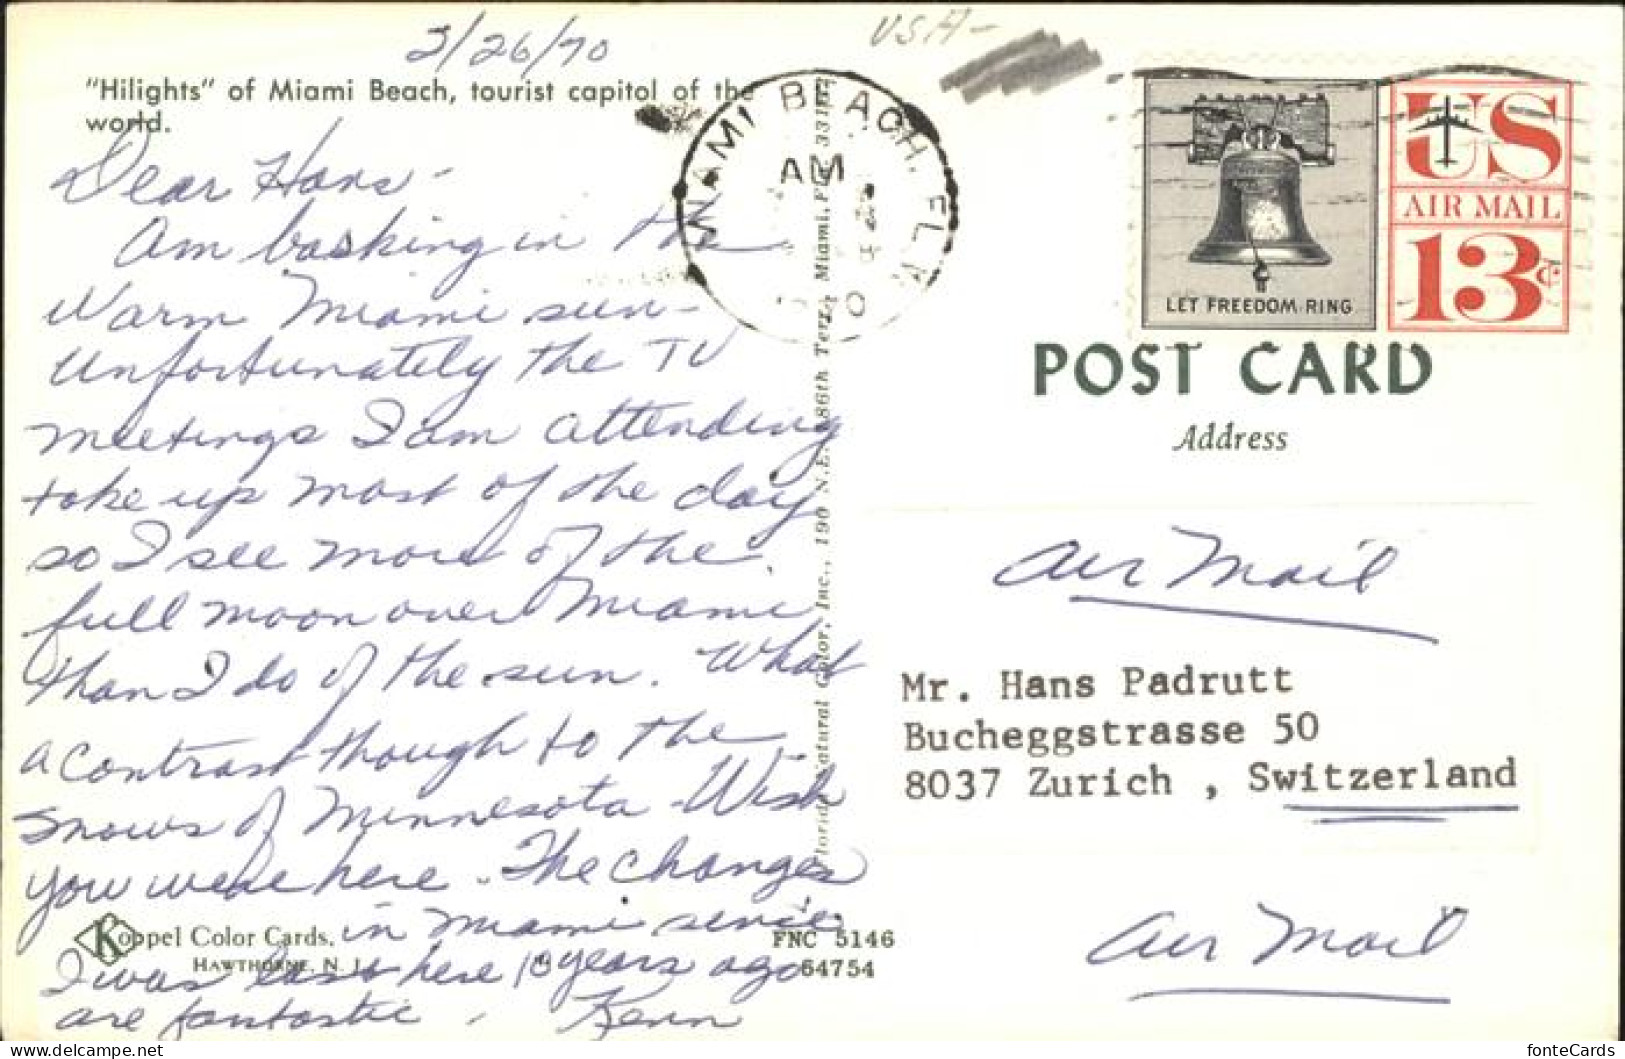 3/26/70
USA-
"Hilights" of Miami Beach, tourist capitol of the
world.
Dear Hans -
Am basking in the
warm Miami sun-
Unfortunately the TV
meetings I am attending
take up most of the day
so I see more of the
full moon over Miami
than I do of the sun. What
a contrast though to the
snows of Minnesota - Wish
you were here. The changes
in Miami since
I was last here 10 years ago
are fantastic.
Koppel Color Cards,
HAWTHORNE, N. J.
FNC 5146
64754
Florida Natural Color, Inc., 190 N.E. 86th Terr., Miami, Fla. 33138
MIAMI BEACH, FLA.
AM
LET FREEDOM RING
US
AIR MAIL
13¢
POST CARD
Address
Air Mail
Mr. Hans Padrutt
Bucheggstrasse 50
8037 Zurich , Switzerland
Air Mail
fonteCards